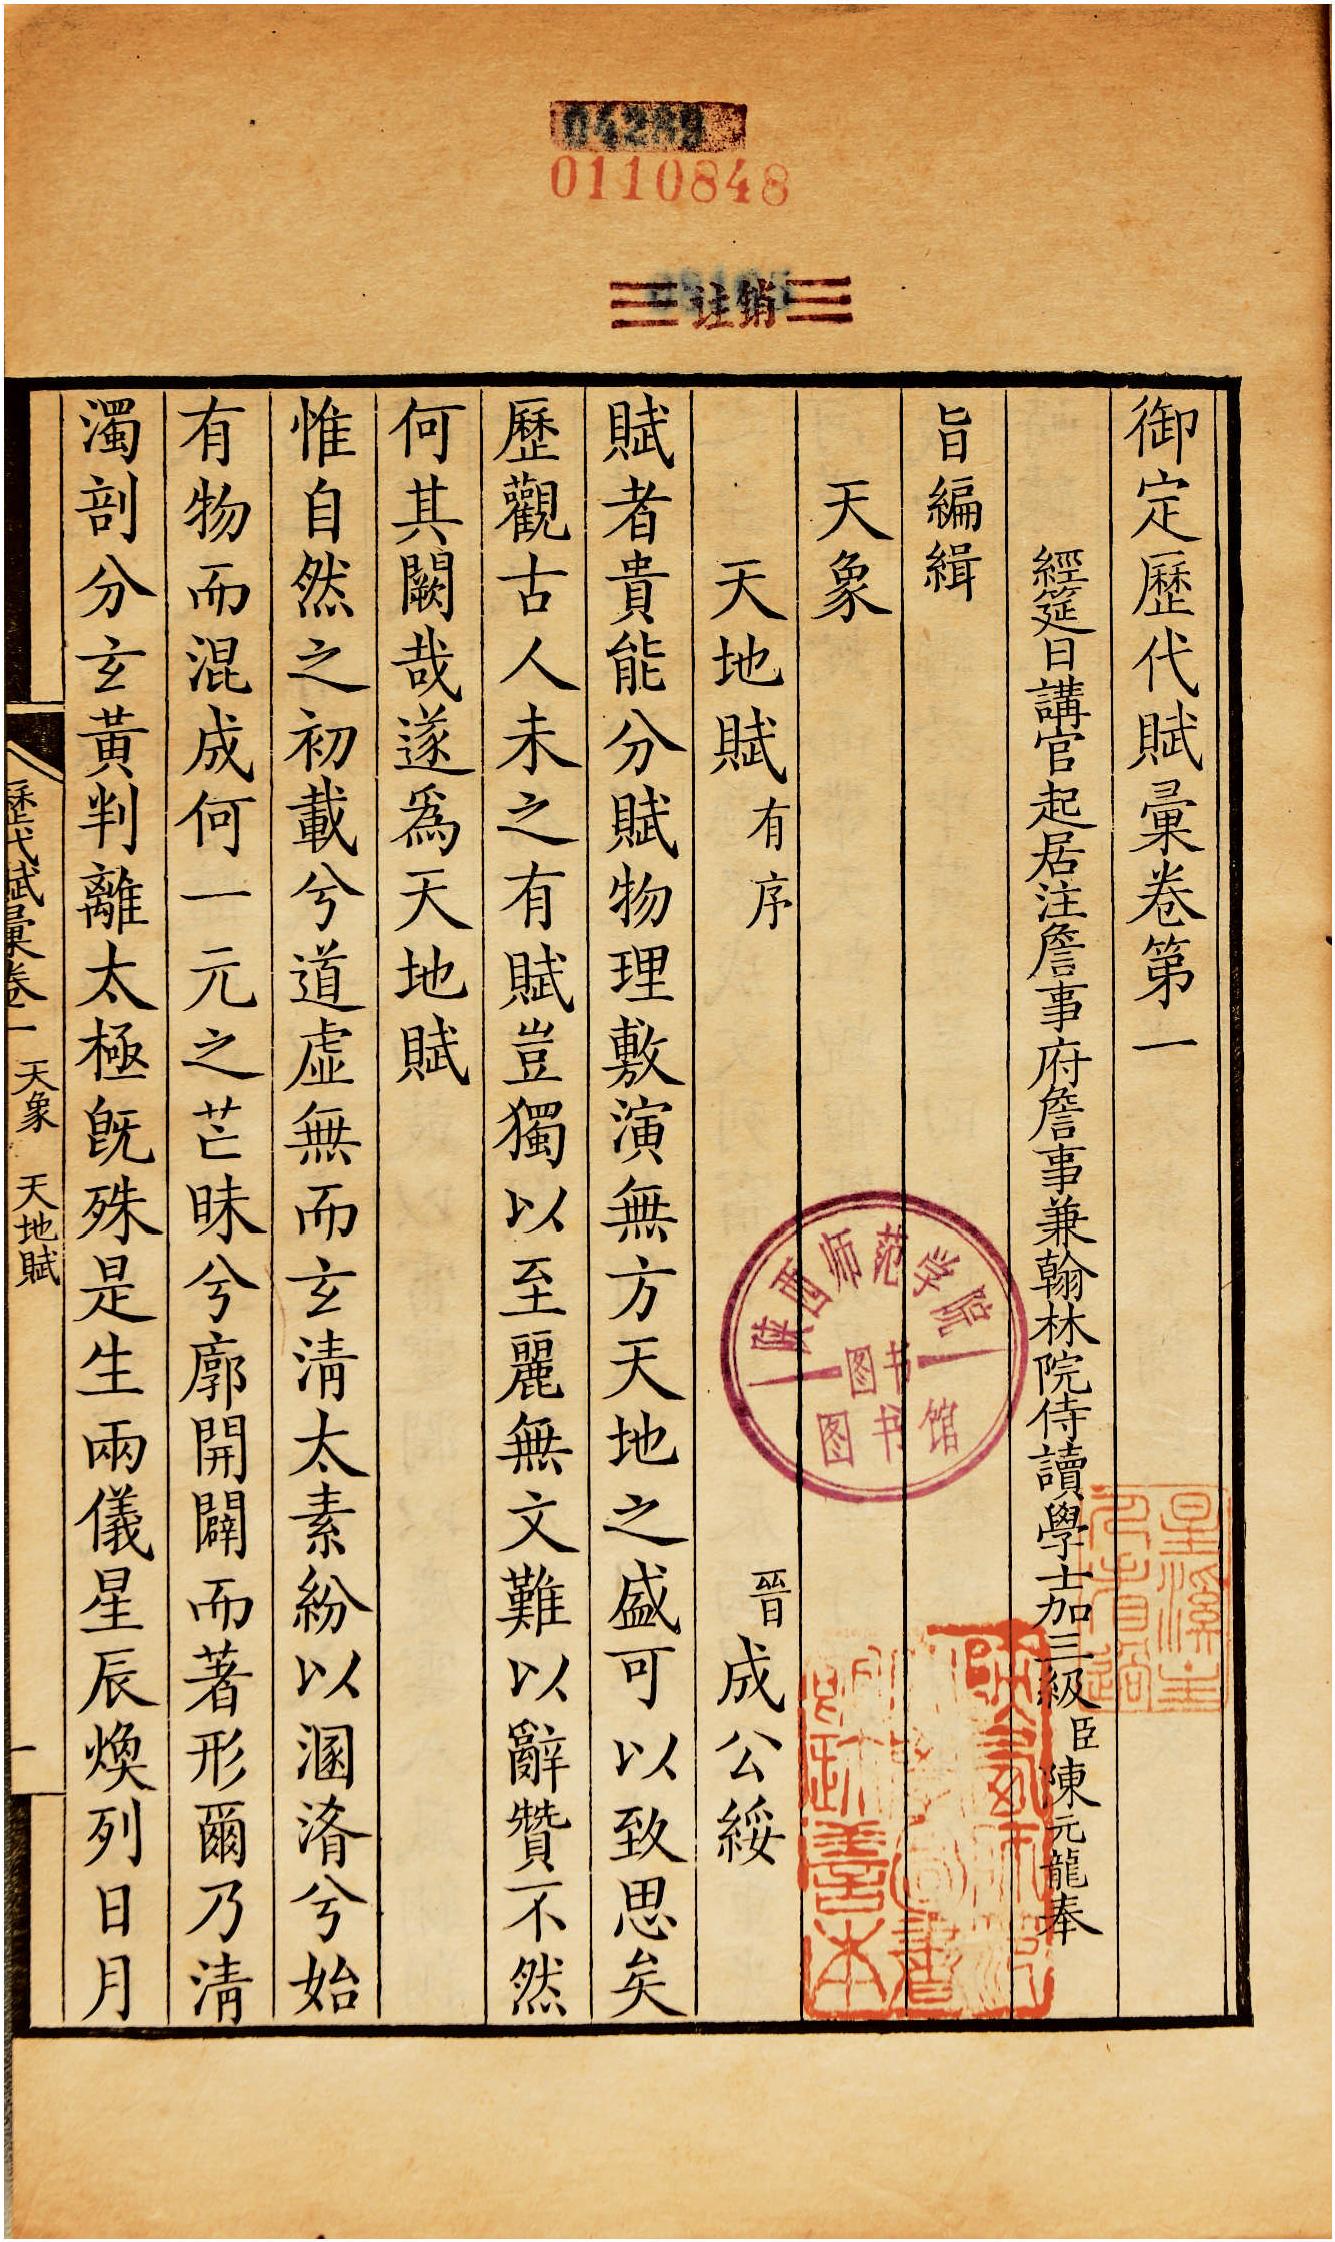 0110848
注销
御定歷代賦彙卷第一
經筵日講官起居注詹事府詹事兼翰林院侍讀學士加三級臣陳元龍奉
旨編緝
天象
天地賦有序 晉成公綏
賦者貴能分賦物理敷演無方天地之盛可以致思矣
歷觀古人未之有賦豈獨以至麗無文難以辭贊不然
何其闕哉遂為天地賦
惟自然之初載兮道虛無而玄清太素紛以溷淆兮始
有物而混成何一元之芒昧兮廓開闢而著形爾乃清
濁剖分玄黃判離太極旣殊是生兩儀星辰煥列日月
歷代賦彙卷一 天象 天地賦 一
陕西师范学院
图书
图书馆